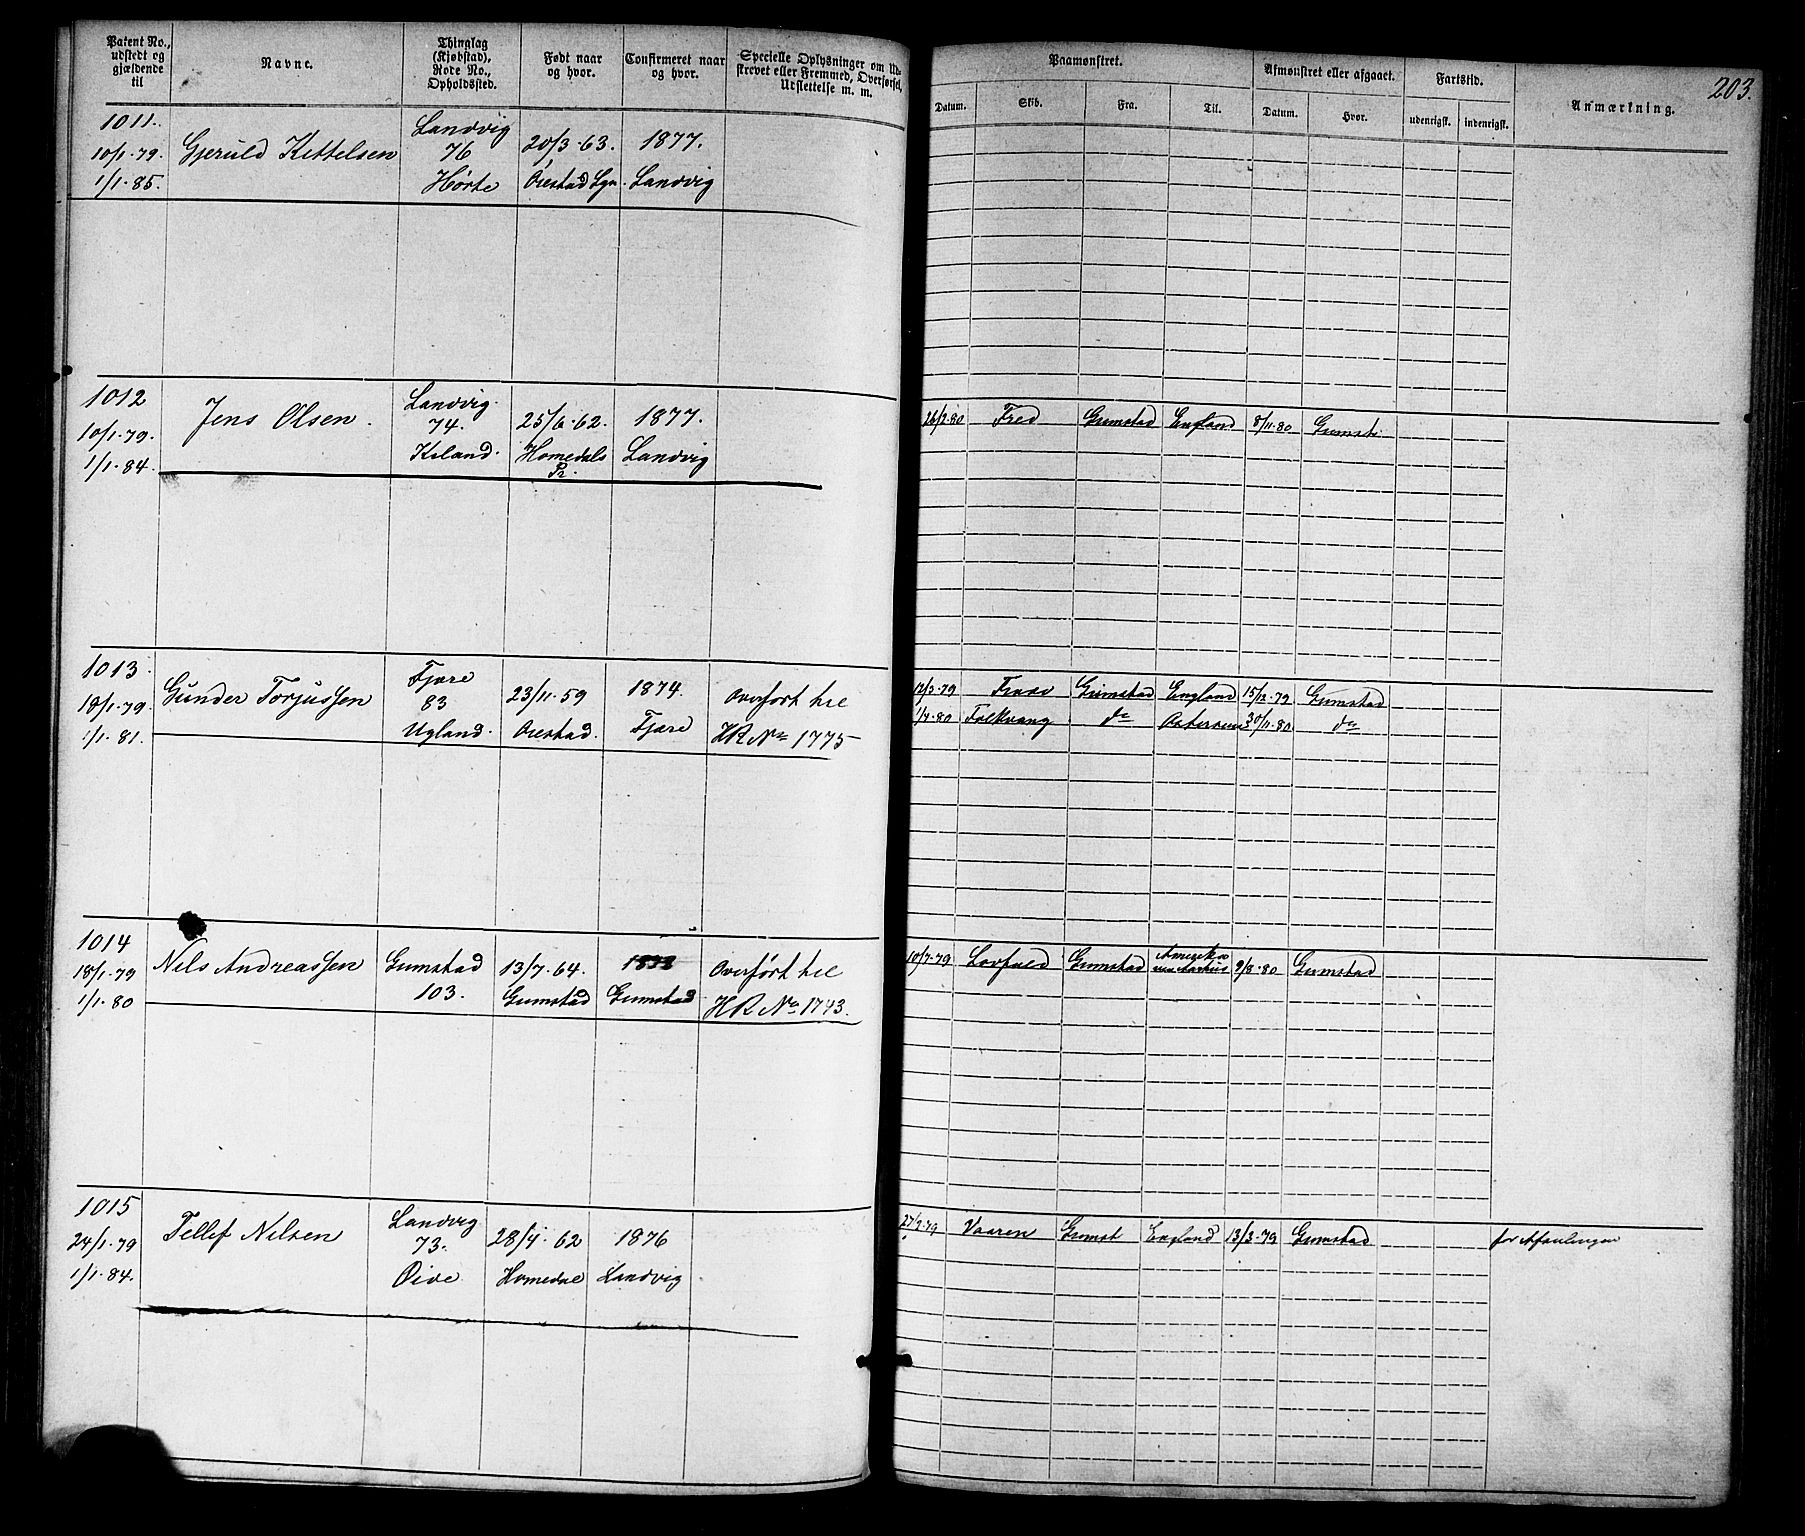 Patent No., udstedt og gjældende til
Navne.
Thinglag (Kjøbstad), Rode No., Opholdssted.
Født naar og hvor.
Confirmeret naar og hvor.
Specielle Oplysninger om Ud-
skrevet eller Fremmed, Overførsel,
Udslettelse m. m.
Paamønstret.
Datum. Skib. Fra. Til.
Afmønstret eller afgaaet.
Datum. Hvor.
Fartstid.
udenrigsk. indenrigsk.
Anmærkning.
203.
1011.
10/1.79.
1/1.85.
Gjeruld Kittelsen
Landvig
76
Hørte
20/3.63.
Øiestad Sgn.
1877.
Landvig
1012
10/1.79.
1/1.84.
Jens Olsen.
Landvig.
74.
Kiland.
25/6.62.
Homedals
Pr.
1877.
Landvig
26/2.80 Fred Grimstad England 8/11.80 Grimst.
1013.
18/1.79.
1/1.81.
Gunder Torjussen
Fjære
83
Ugland.
23/11.59
Øiestad.
1874.
Fjære
Overført til
HR No 1775
12/3.79 Grimstad England 15/12.79 Grimstad
1/4.80 Folkvang do 30/11.80 do
1014
18/1.79
1/1.80
Nils Andreassen
Grimstad
103.
13/7.64.
Grimstad
Grimstad
Overført til
HR No 1743.
10/7.79 Lovfald Grimstad Amerika 9/8.80 Grimstad
1015
24/1.79
1/1.84.
Tellef Nilsen
Landvig
73.
Øide
28/4.62
Homedal
1876
Landvig
27/2.79 Vaaren Grimst England 13/3.79 Grimstad